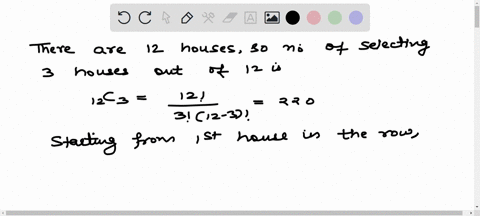 There are 12 houses, so no. of selecting
3 houses out of 12 is
12C3 = 12! / 3!(12-3)! = 220
Starting from 1st house in the row,